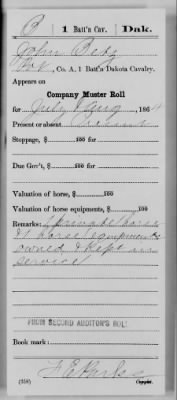 B | 1 Batt'n Cav. | Dak.
John Betz
Pvt, Co. A, 1 Batt'n Dakota Cavalry.
Appears on
Company Muster Roll
for July & Aug, 1864
Present or absent Present
Stoppage, $ 100 for
Due Gov't, $ 100 for
Valuation of horse, $ 100
Valuation of horse equipments, $ 100
Remarks: 1 private horse
& 1 horse equipments
owned & kept in
service
FROM SECOND AUDITOR'S ROLL
Book mark:
(358) Copyist.